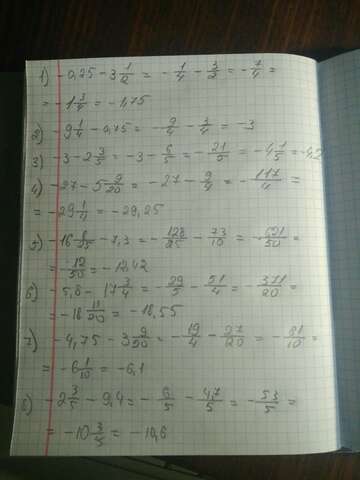 1) -0,25 - 3 1/2 = - 1/4 - 3/2 = - 7/4 =
= -1 3/4 = -1,75
2) -9 1/4 - 0,75 = - 9/4 - 3/4 = -3
3) -3 - 2 3/5 = -3 - 6/5 = - 21/5 = -4 1/5 = -4,2
4) -27 - 5 9/20 = -27 - 9/4 = - 117/4 =
= -29 1/4 = -29,25
5) -16 8/25 - 7,3 = - 128/25 - 73/10 = - 621/50 =
= - 12/50 = -12,42
6) -5,8 - 17 3/4 = - 29/5 - 51/4 = - 371/20 =
= -18 11/20 = -18,55
7) -4,75 - 3 9/20 = - 19/4 - 27/20 = - 61/10 =
= -6 1/10 = -6,1
8) -2 3/5 - 9,4 = - 6/5 - 47/5 = - 53/5 =
= -10 3/5 = -10,6